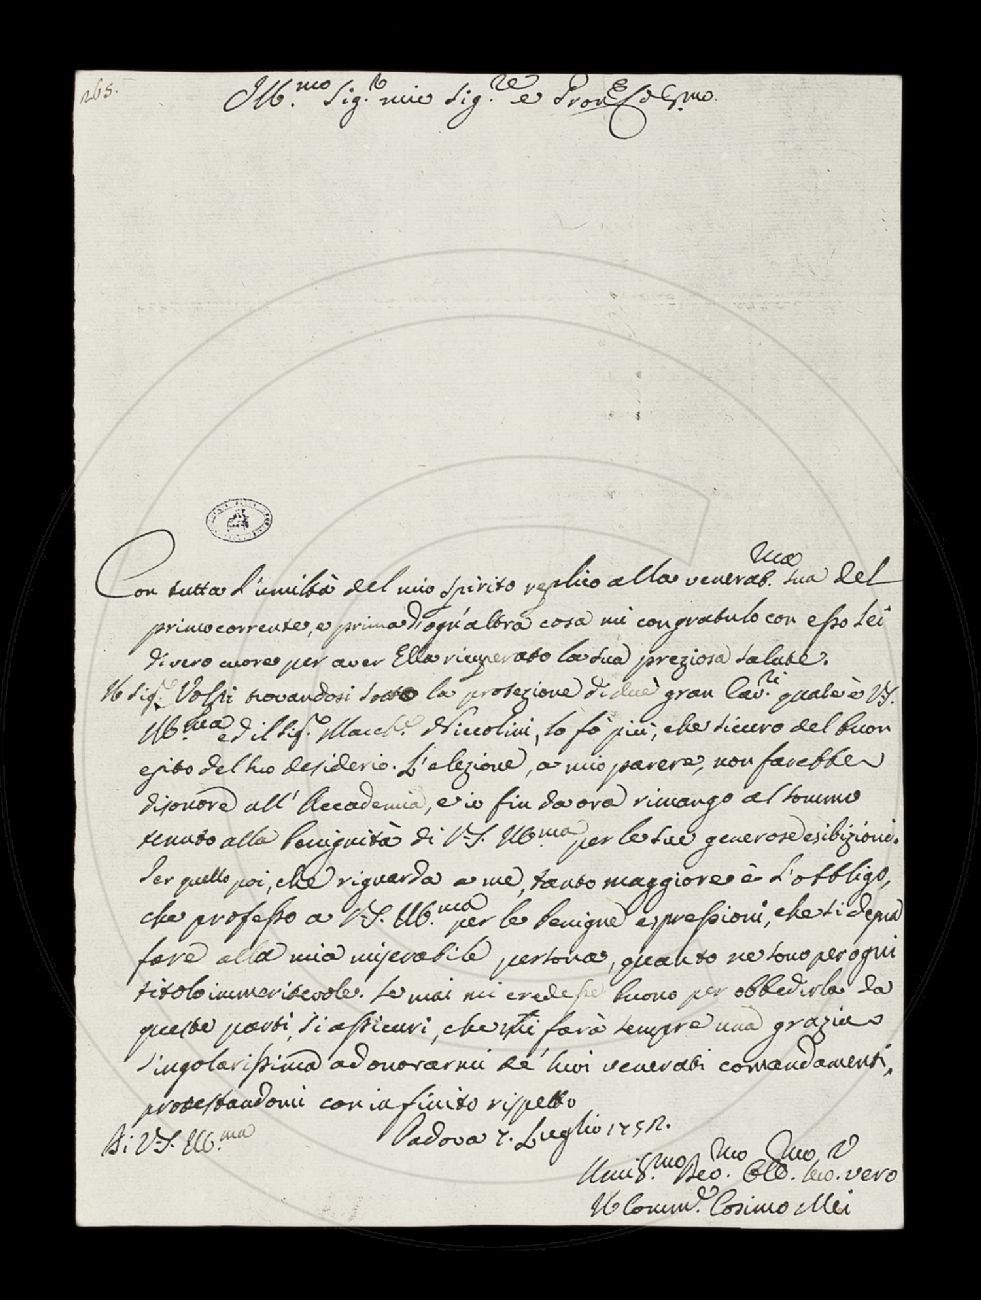 265.
Ill.mo Sig.r mio Sig.re e Pron.e Col.mo
Con tutta l'umiltà del mio spirito replico alla venerab.ma sua del
primo corrente, e prima d'ogn'altra cosa mi congratulo con esso Lei
di vero cuore per aver Ella ricuperato la sua preziosa salute.
Il Sig.r Volpi trovandosi sotto la protezione di due gran Cav.ri quale è V.S.
Ill.ma ed il Sig.r March.e Niccolini, lo fò più, che sicuro del buon
esito del suo desiderio. L'elezione, a mio parere, non farebbe
disonore all' Accademia, e io fin da ora rimango al sommo
tenuto alla benignità di V.S. Ill.ma per le sue generose esibizioni.
Per quello poi, che riguarda a me, tanto maggiore è l'obbligo,
che professo a V.S. Ill.ma per le benigne espressioni, che si degna
fare alla mia miserabile persona, quanto ne sono per ogni
titolo immeritevole. Se mai mi credesse buono per obbedirla da
queste parti, si assicuri, che mi farà sempre una grazia
singolarissima ad onorarmi de' suoi venerati comandamenti,
protestandomi con infinito rispetto
Di V.S. Ill.ma Padova 7. Luglio 1752.
Umil.mo Dev.mo Obb.mo Ser. vero
Il Comm.r Cosimo Mei